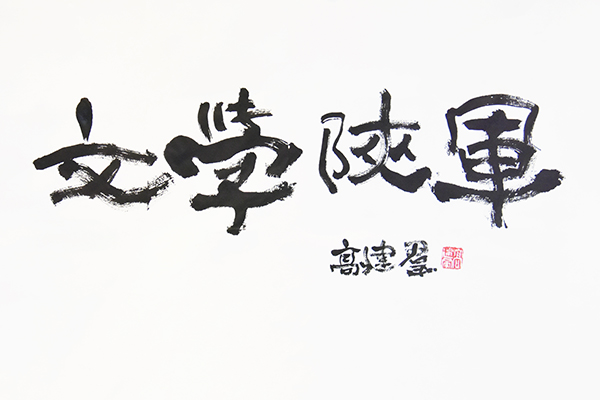 文学陕軍
高建群